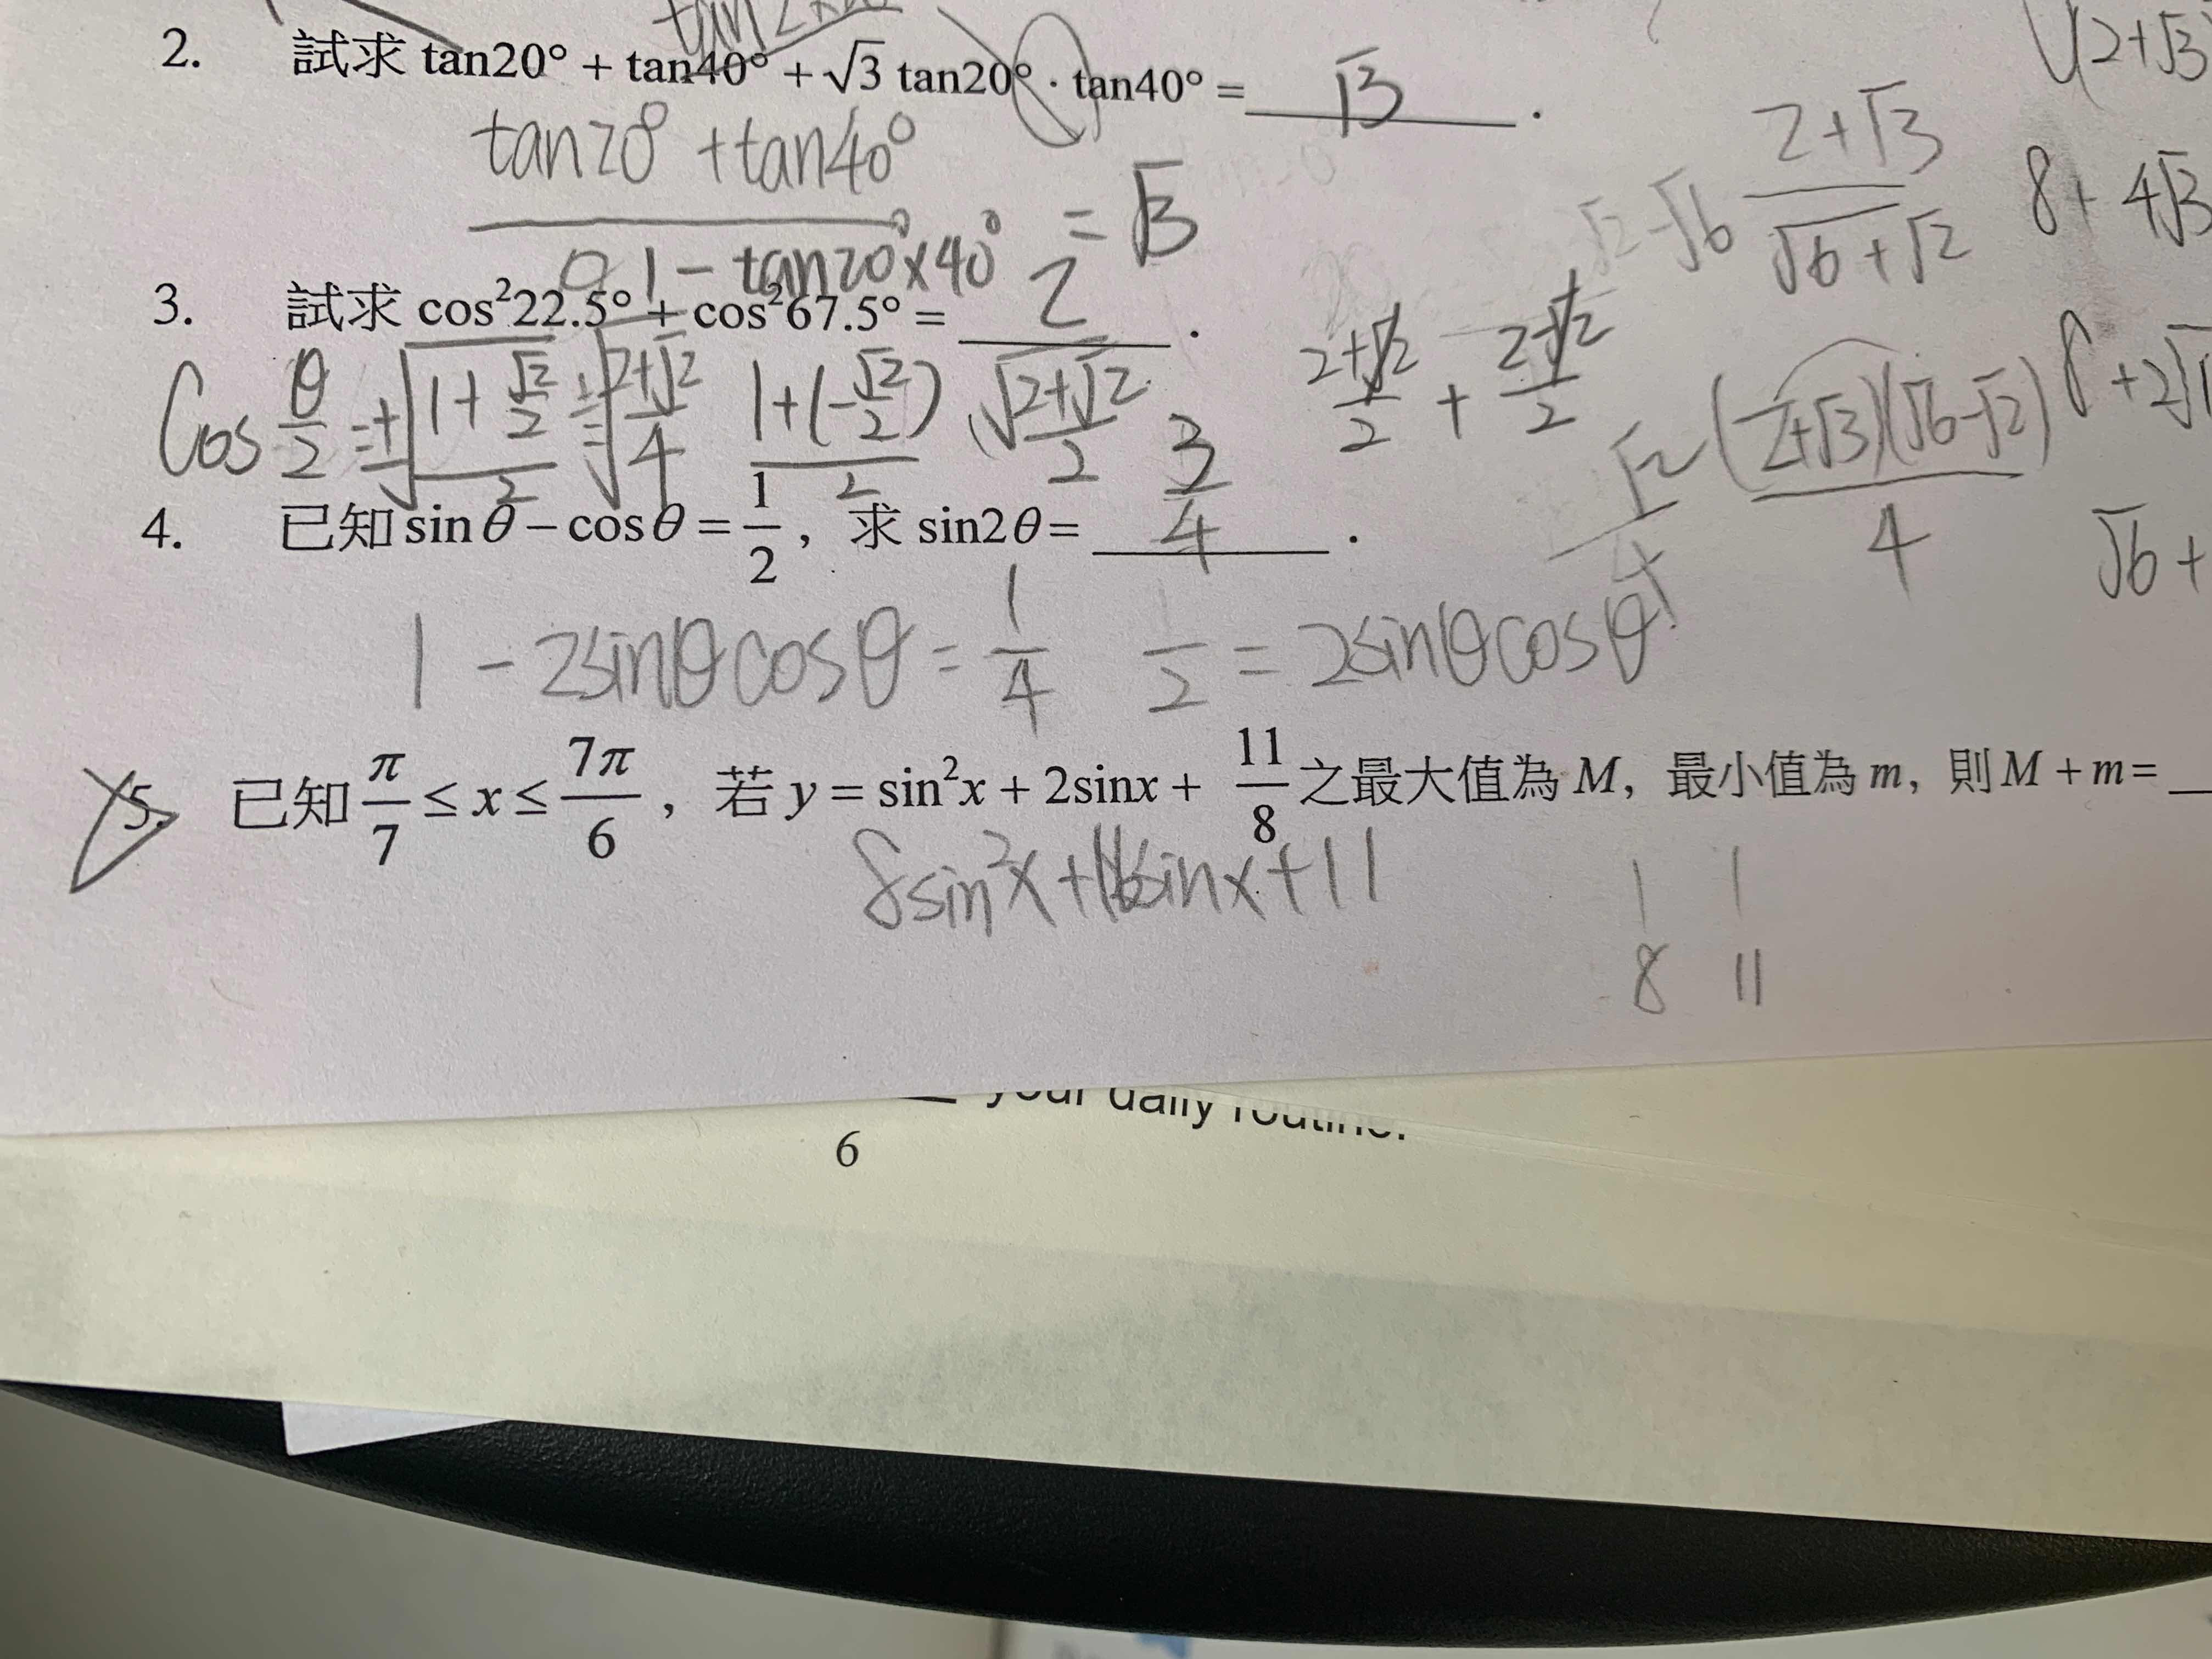 2. 試求 tan20° + tan40° + √3 tan20° · tan40° = √3 .
tan20° + tan40°
1 - tan20° x 40° = √3
2+√3
√6+√2
√2 - √6
8 + 4√3
3. 試求 cos²22.5° + cos²67.5° = 2 .
Cos θ/2 = ±√((1 + √2/2)/2) = √((2+√2)/4) (1+(-√2/2))/2 √(2+√2)/2
(2+√2)/2 + (2-√2)/2
(2+√3)(√6-√2)
4
√6 +
4. 已知 sinθ - cosθ = 1/2 , 求 sin2θ = 3/4 .
1 - 2sinθcosθ = 1/4 1/2 = 2sinθcosθ
5. 已知 π/7 ≤ x ≤ 7π/6 , 若 y = sin²x + 2sinx + 11/8 之最大值為 M, 最小值為 m, 則 M + m =
8sin²x + 16sinx + 11
1 1
8 11
your daily routine.
6